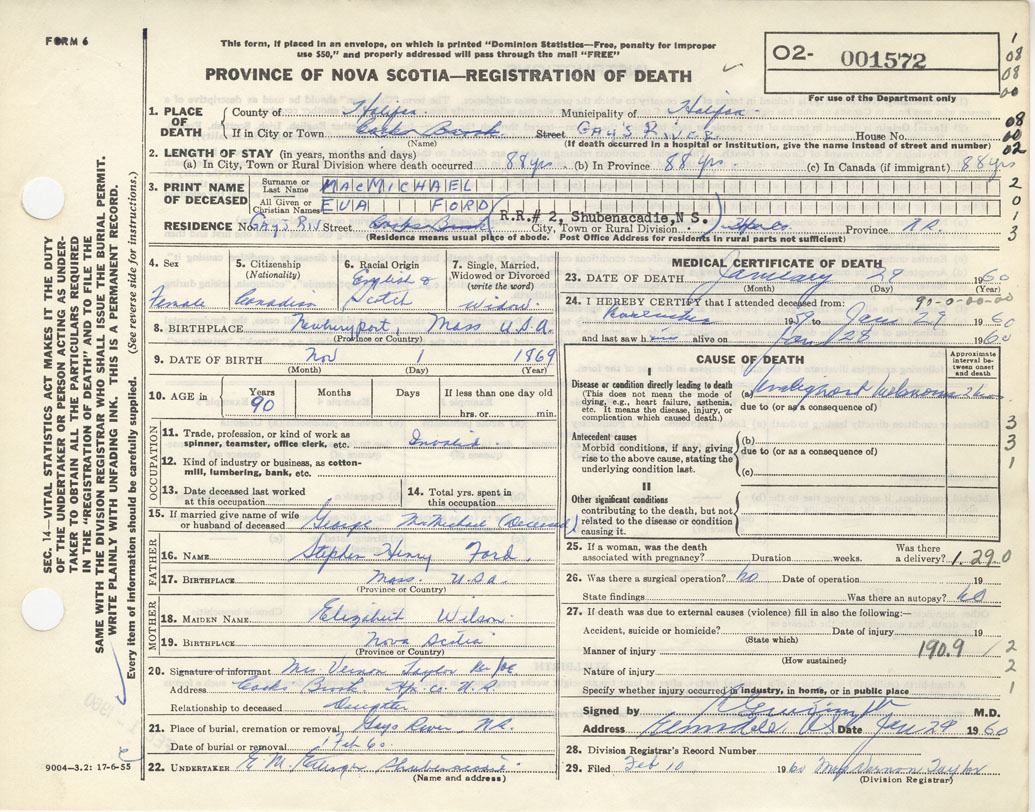 FORM 6
This form, if placed in an envelope, on which is printed "Dominion Statistics—Free, penalty for improper
use $50," and properly addressed will pass through the mail "FREE"
PROVINCE OF NOVA SCOTIA—REGISTRATION OF DEATH
O2- 001572
For use of the Department only
1
08
08
00
1. PLACE OF DEATH
County of Halifax Municipality of Halifax
If in City or Town Cooks Brook Street GAYS RIVER House No.
(Name) (If death occurred in a hospital or institution, give the name instead of street and number)
08
60
02
2. LENGTH OF STAY (in years, months and days)
(a) In City, Town or Rural Division where death occurred 88 yrs. (b) In Province 88 yrs (c) In Canada (if immigrant) 88 yrs
3. PRINT NAME OF DECEASED
Surname or Last Name MACMICHAEL
All Given or Christian Names EVA FORD
R.R.# 2, Shubenacadie, N S.
RESIDENCE No. Gays Riv Street Cooks Brook City, Town or Rural Division Province N.S.
(Residence means usual place of abode. Post Office Address for residents in rural parts not sufficient)
2
0
1
3
4. Sex
Female
5. Citizenship
(Nationality)
Canadian
6. Racial Origin
English &
Scotch
7. Single, Married,
Widowed or Divorced
(write the word)
Widow
8. BIRTHPLACE Newburyport, Mass U.S.A.
(Province or Country)
9. DATE OF BIRTH Nov 1 1869
(Month) (Day) (Year)
10. AGE in
Years Months Days If less than one day old
90 hrs. or min.
OCCUPATION
11. Trade, profession, or kind of work as
spinner, teamster, office clerk, etc. Invalid
12. Kind of industry or business, as cotton-
mill, lumbering, bank, etc.
13. Date deceased last worked
at this occupation
14. Total yrs. spent in
this occupation
15. If married give name of wife
or husband of deceased George McMichael (Deceased)
FATHER
16. NAME Stephen Henry Ford
17. BIRTHPLACE Mass. U.S.A.
(Province or Country)
MOTHER
18. MAIDEN NAME Elizabeth Wilson
19. BIRTHPLACE Nova Scotia
(Province or Country)
20. Signature of informant Mrs. Vernon Taylor
Address Cooks Brook Hfx. Co. N.S
Relationship to deceased Daughter
21. Place of burial, cremation or removal Gays River N.S.
Date of burial or removal 1 Feb 60
22. UNDERTAKER E. M. Ettinger Shubenacadie
(Name and address)
9004—3.2: 17-6-55
SEC. 14—VITAL STATISTICS ACT MAKES IT THE DUTY
OF THE UNDERTAKER OR PERSON ACTING AS UNDER-
TAKER TO OBTAIN ALL THE PARTICULARS REQUIRED
IN THE "REGISTRATION OF DEATH" AND TO FILE THE
SAME WITH THE DIVISION REGISTRAR WHO SHALL ISSUE THE BURIAL PERMIT.
WRITE PLAINLY WITH UNFADING INK. THIS IS A PERMANENT RECORD.
Every item of information should be carefully supplied. (See reverse side for instructions.)
MEDICAL CERTIFICATE OF DEATH
23. DATE OF DEATH January 29 1960
(Month) (Day) (Year)
90-0-00-00
24. I HEREBY CERTIFY that I attended deceased from:
1959 to Jan 29 1960
and last saw h alive on Jan 28 1960
CAUSE OF DEATH
Approximate
interval be-
tween onset
and death
I
Disease or condition directly leading to death
(This does not mean the mode of
dying, e.g., heart failure, asthenia,
etc. It means the disease, injury, or
complication which caused death.)
(a) Malignant Melanoma
due to (or as a consequence of)
Antecedent causes
Morbid conditions, if any, giving
rise to the above cause, stating the
underlying condition last.
(b)
due to (or as a consequence of)
(c)
3
3
1
II
Other significant conditions
contributing to the death, but not
related to the disease or condition
causing it.
25. If a woman, was the death
associated with pregnancy? Duration weeks. Was there
a delivery? 1.290
26. Was there a surgical operation? No Date of operation 19
State findings Was there an autopsy? No
27. If death was due to external causes (violence) fill in also the following:—
Accident, suicide or homicide? Date of injury 19
(State which)
Manner of injury 190.9
(How sustained)
Nature of injury
Specify whether injury occurred in industry, in home, or in public place
2
2
1
Signed by M.D.
Address Elmsdale N.S. Date Jan 29 1960
28. Division Registrar's Record Number
29. Filed Feb 10 1960 Mrs Vernon Taylor
(Division Registrar)